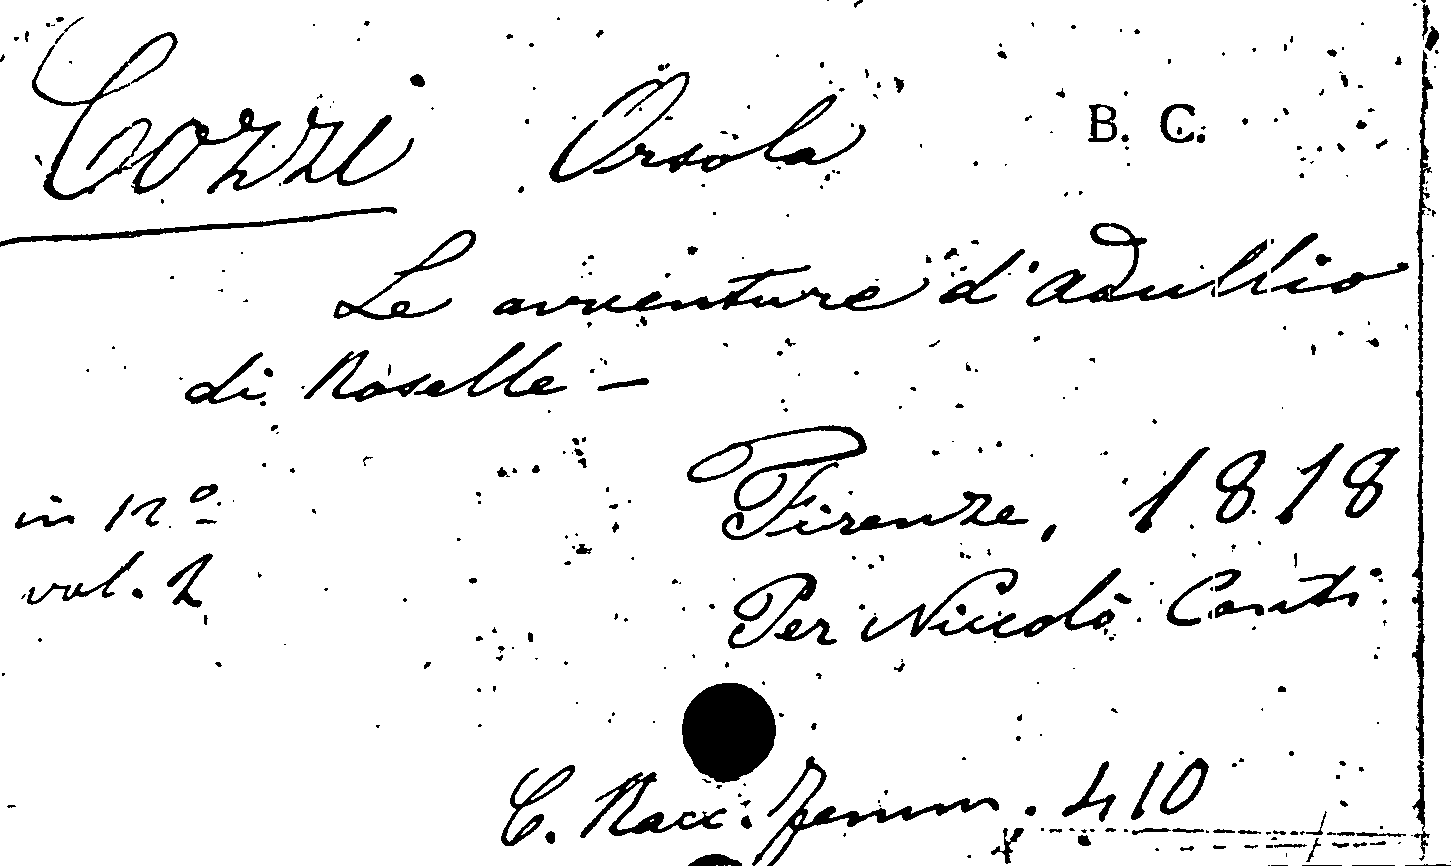 Cozzi Orsola B. C.
Le avventure d'Adullio
di Roselle —
in 12º
Firenze, 1818
vol. 2
Per Niccolò Conti
C. Racc. femm. 410